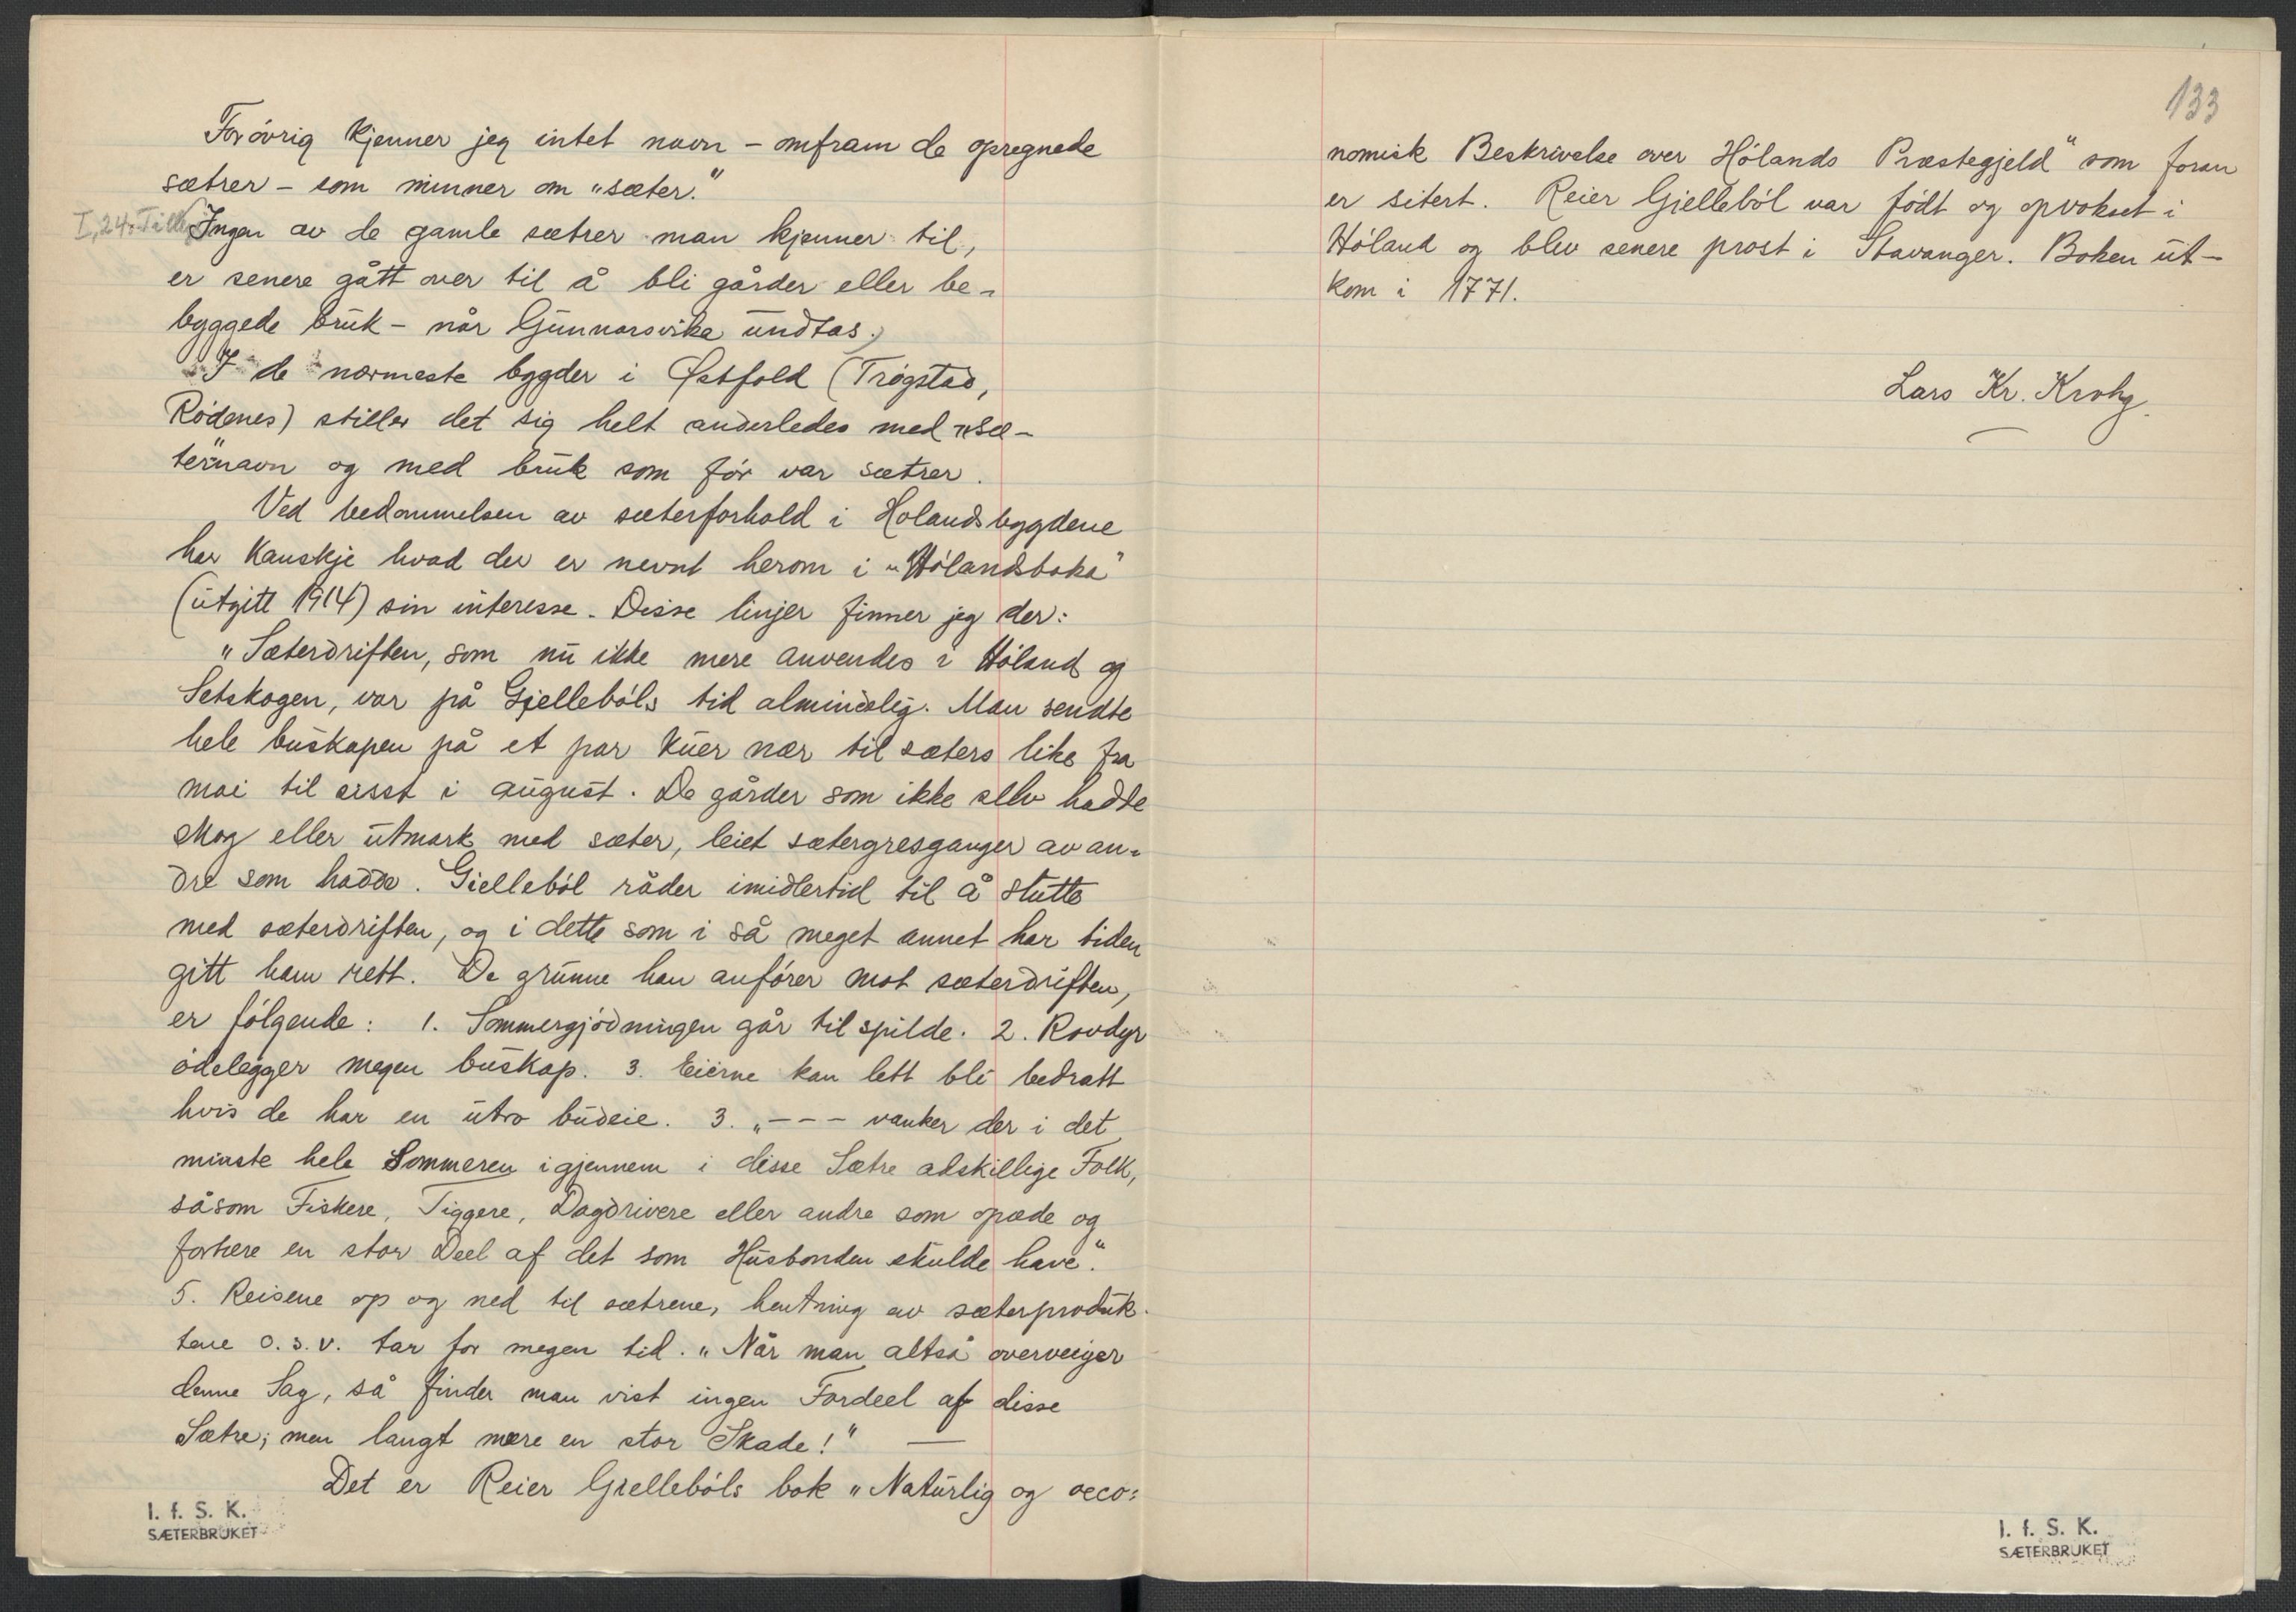 Forøvrig kjenner jeg intet navn - omfram de opregnede
sætrer - som minner om "sæter."
I, 24. Tillegg
Ingen av de gamle sætrer man kjenner til,
er senere gått over til å bli gårder eller be-
byggede bruk - når Gunnarsvika undtas.
I de nærmeste bygder i Østfold (Trøgstad,
Rødenes) stiller det sig helt anderledes med "sæ-
ter"navn og med bruk som før var sætrer.
Ved bedømmelsen av sæterforhold i Hølandsbygdene
har kanskje hvad der er nevnt herom i "Hølandsboka"
(utgitt 1914) sin interesse. Disse linjer finner jeg der:
"Sæterdriften, som nu ikke mere anvendes i Høland og
Setskogen, var på Gjellebøls tid almindelig. Man sendte
hele buskapen på et par kuer nær til sæters like fra
mai til sisst i august. De gårder som ikke selv hadde
skog eller utmark med sæter, leiet sætergresganger av an-
dre som hadde. Gielleból råder imidlertid til å slutte
med sæterdriften, og i dette som i så meget annet har tiden
gitt ham rett. De grunne han anfører mot sæterdriften,
er følgende: 1. Sommergjødningen går til spilde. 2. Rovdyr
ødelegger megen buskap. 3. Eierne kan lett bli bedratt
hvis de har en utro budeie. 3. "--- vanker der i det
minste hele Sommeren igjennem i disse Sætre adskillige Folk,
såsom Fiskere, Tiggere, Dagdrivere eller andre som opæde og
fortære en stor Deel af det som Husbonden skulde have".
5. Reisene op og ned til sætrene, hentning av sæterproduk-
tene o.s.v. tar for megen tid. "Når man altså overveiger
denne Sag, så finder man vist ingen Fordeel af disse
Sætre; men langt mere en stor Skade!" —
Det er Reier Gjellebøls bok "Naturlig og oeco-
I. f. S. K.
SÆTERBRUKET
133
nomisk Beskrivelse over Hølands Præstegjeld" som foran
er sitert. Reier Gjellebøl var født og opvokset i
Høland og blev senere prost i Stavanger. Boken ut-
kom i 1771.
Lars Kr. Krohg.
I. f. S. K.
SÆTERBRUKET